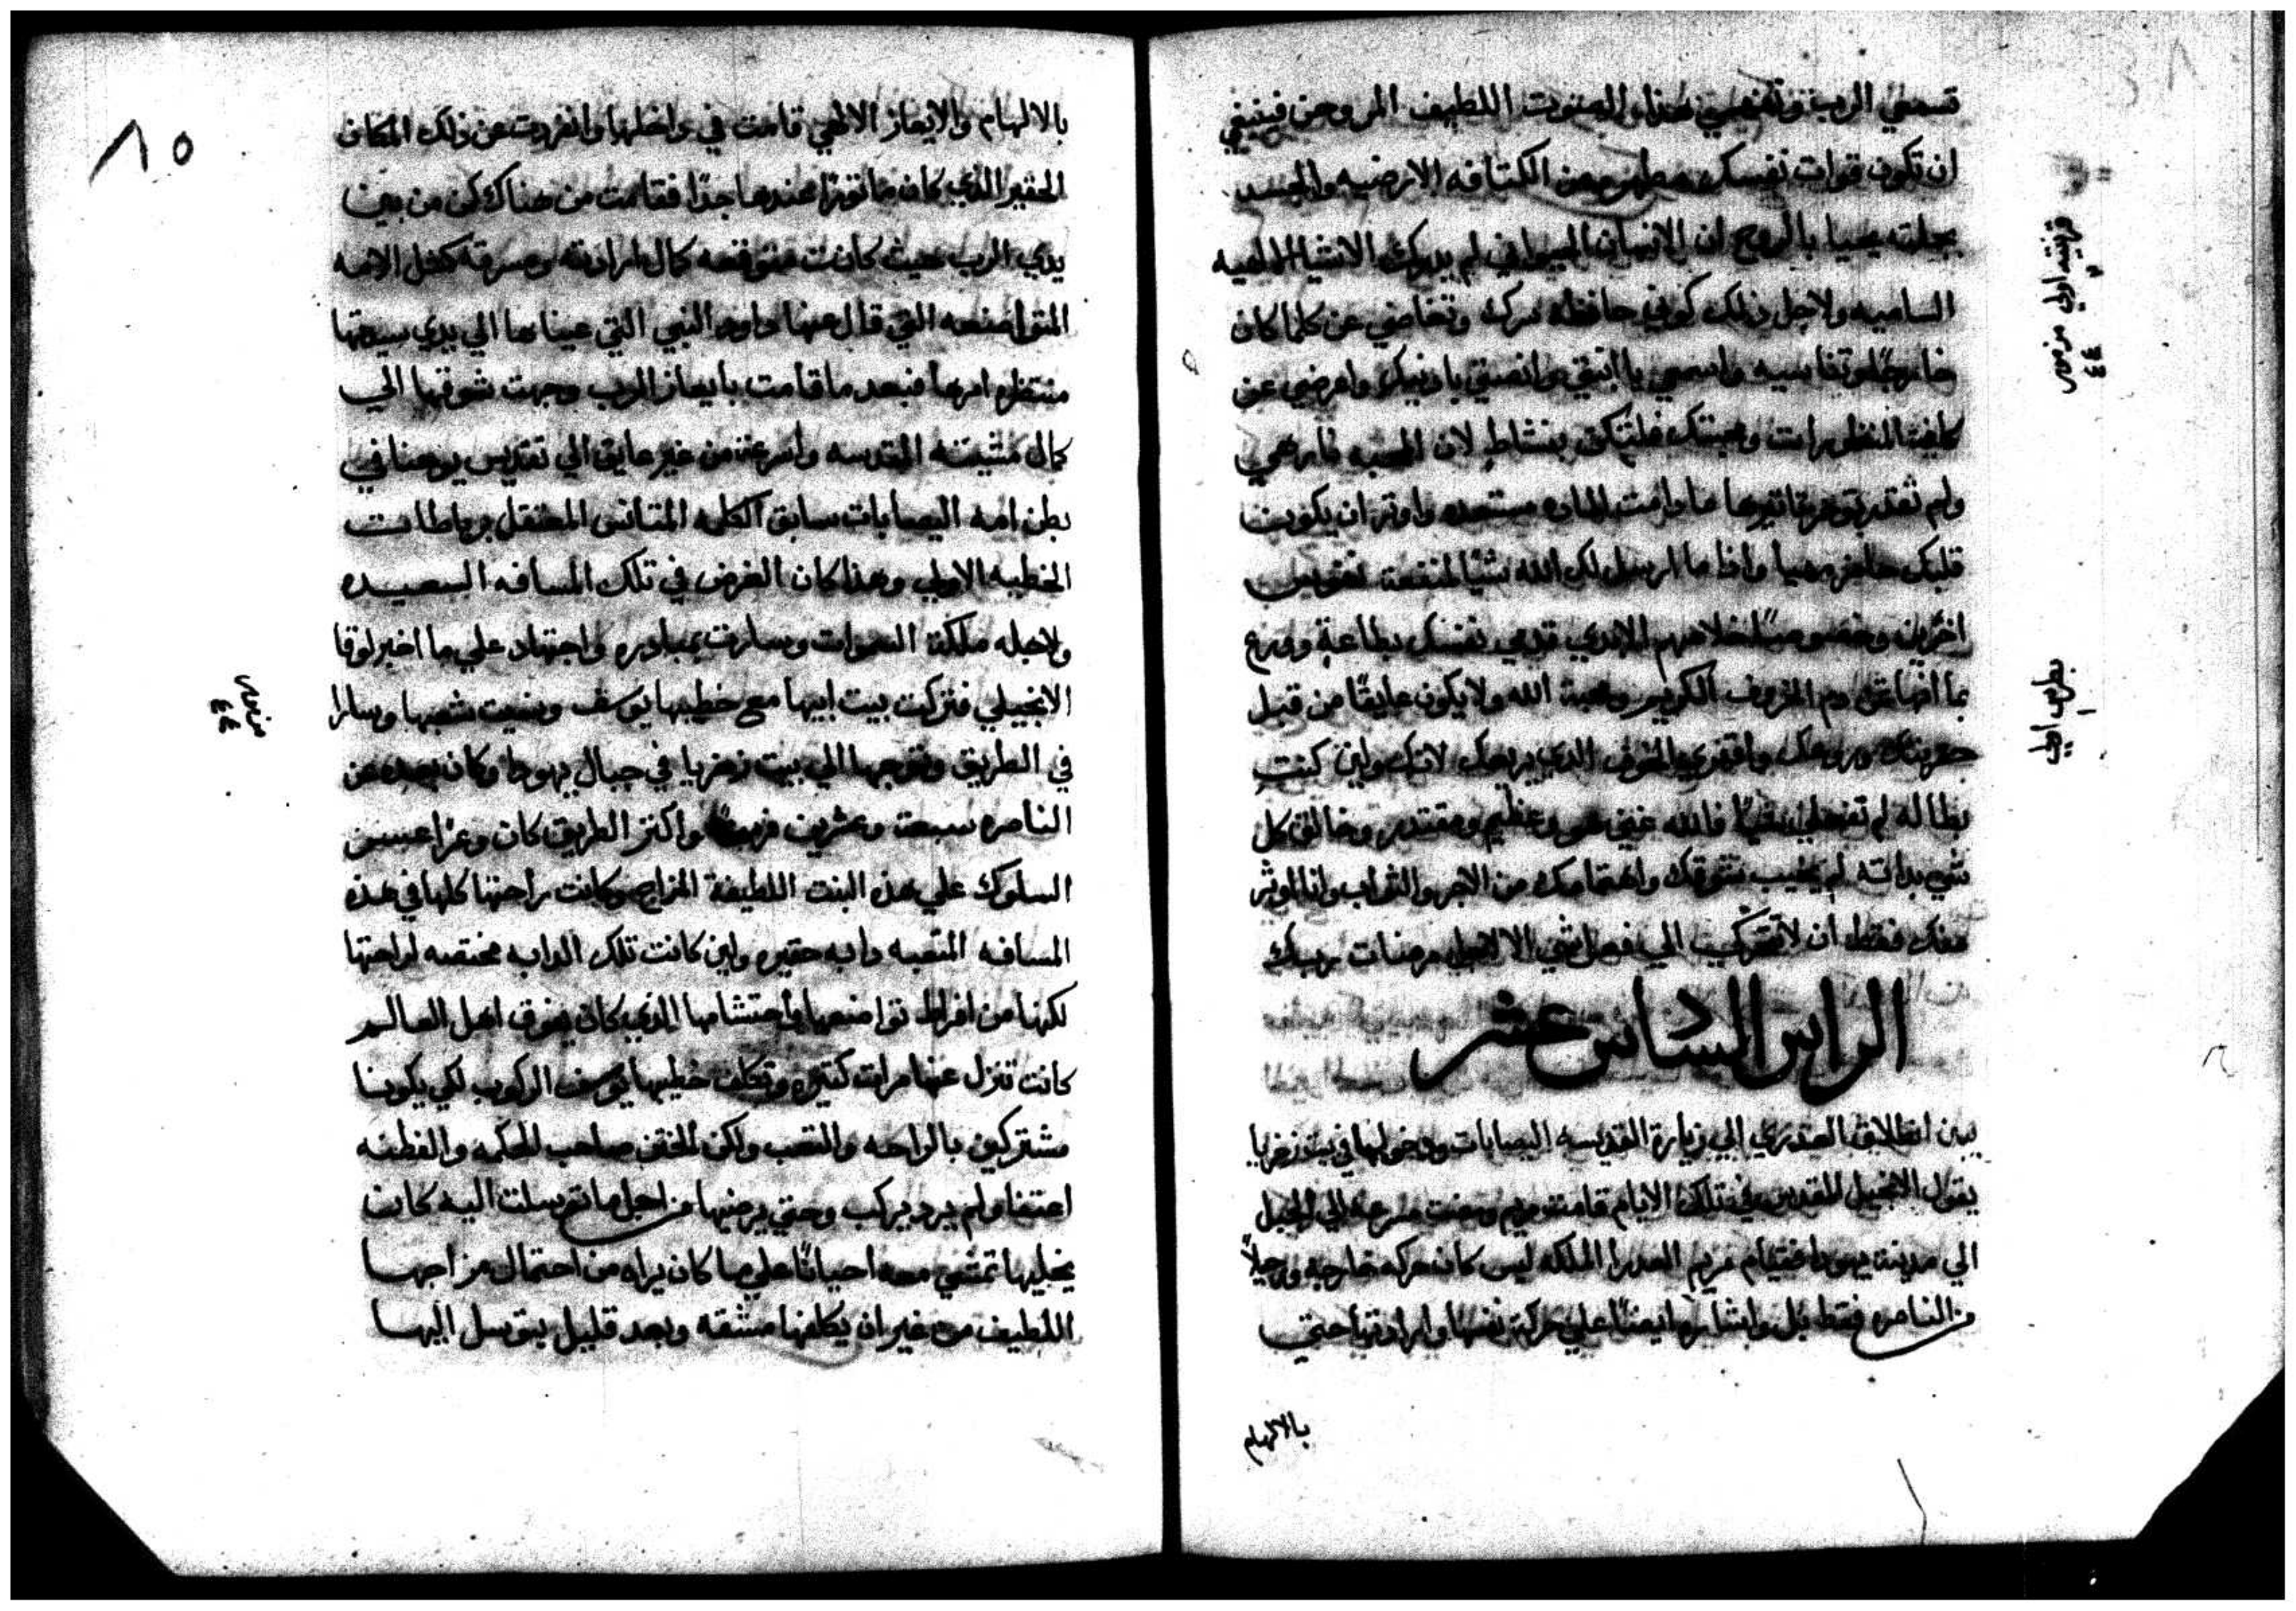 تسمعي الرب وتفهمي هذا الصوت اللطيف المروحن فينبغي
ان تكون قوات نفسك مطهره من الكتافه الارضيه والجسد
بجملته يحيا بالروح ان الانسان الحيواني لم يدرك الاشيا الالهيه
الساميه ولاجل ذلك كوني حافظه سرك وتغاضي عن كلما كان
خارجًا وتناسيه واسمعي يا ابنتي وانصتي باذنيك واعرضي عن
كافة المنظورات ومحبتك فلتكن بنشاط لان المحبه نار هي
ولم تقدر تاثيرها ما دامت الماده مستعده واوثر ان يكون
قلبك حاضر مهيا واذا ما ارسل لك الله شيًا لمنفعة نفوس
اخرين وخصوصًا لخلاصهم الابدي قدمي نفسك بطاعة وورع
بما انها ثمن دم الخروف الكريم ومحبة الله ولا يكون عايقًا من قبل
حقريتك وروعك الخوف الذي يرهبك لانك ولين كنت
بطاله لم تفعلي شيًا فالله غني هو وعظيم ومقتدر وخالق كل
شي بذاته لم يخيب شوقك واهتمامك من الاجر والثواب وانا اوثر
منك فقط ان لا تتحركي الي فعل شي الا لاجل مرضات ربك
الراس السادس عشر
يبين انطلاق العذري الي زيارة القديسه اليصابات ودخولها في بيت زخريا
يقول الانجيل المقدس في تلك الايام قامت مريم ومضت مسرعه الي الجبل
الي مدينة يهودا فقيام مريم العدرا الملكه ليس كان حركه خارجه ورحيلًا
من الناصره فقط بل واشارها ايضًا علي حركة نفسها وارادتها حتي
بالالهام
قرنتيه اولي
مزمور
٤٤
بطرس اولي
١
٨٥
بالالهام والايعاز الالهي قامت في داخلها وانفردت عن ذلك المكان
الحقير الذي كان ماثورًا عندها جدًا فقامت من هناك كن من بين
يدي الرب حيث كانت متوقعه كمال ارادته ومسرته كمثل الامه
المتواضعه التي قال عنها داوود النبي التي عيناها الي يدي سيدتها
منتظره امرها فبعد ما قامت بايعاز الرب وجهت شوقها الي
كمال مشيته المقدسه واسرعت من غير عايق الي تقديس يوحنا في
بطن امه اليصابات سابق الكلمه المتانس المعتقل برباطات
الخطيه الاولي وهذا كان الغرض في تلك المسافه السعيده
ولاجله ملكة السموات وسارت بمبادره واجتهاد علي ما اخبر لوقا
الانجيلي فتركت بيت ابيها مع خطيبها يوسف ونسيت شعبها وسارا
في الطريق وتوجها الي بيت زخريا في جبال يهودا وكان بعده عن
الناصره سبعة وعشرين فرسخًا واكثر الطريق كان وعرًا عسير
السلوك علي هذه البنت اللطيفة المزاج وكانت راحتها كلها في هذه
المسافه المتعبه دابه حقيره ولين كانت تلك الدابه مختصه لراحتها
لكنها من افراط تواضعها واحتشامها الذي كان يفوق اهل العالم
كانت تنزل عنها مرات كثيره وتكلف خطيبها يوسف الركوب لكي يكونا
مشتركين بالراحه والتعب ولكن الختن صاحب الحكمه والفطنه
اعتفا ولم يرد يركب وحتي يرضيها من اجل ما توسلت اليه كان
يخليها تمشي معه احيانًا علي ما كان يراه من احتمال مزاجها
اللطيف من غير ان يكلفها مشقه وبعد قليل يتوسل اليها
مزمور
٤٤